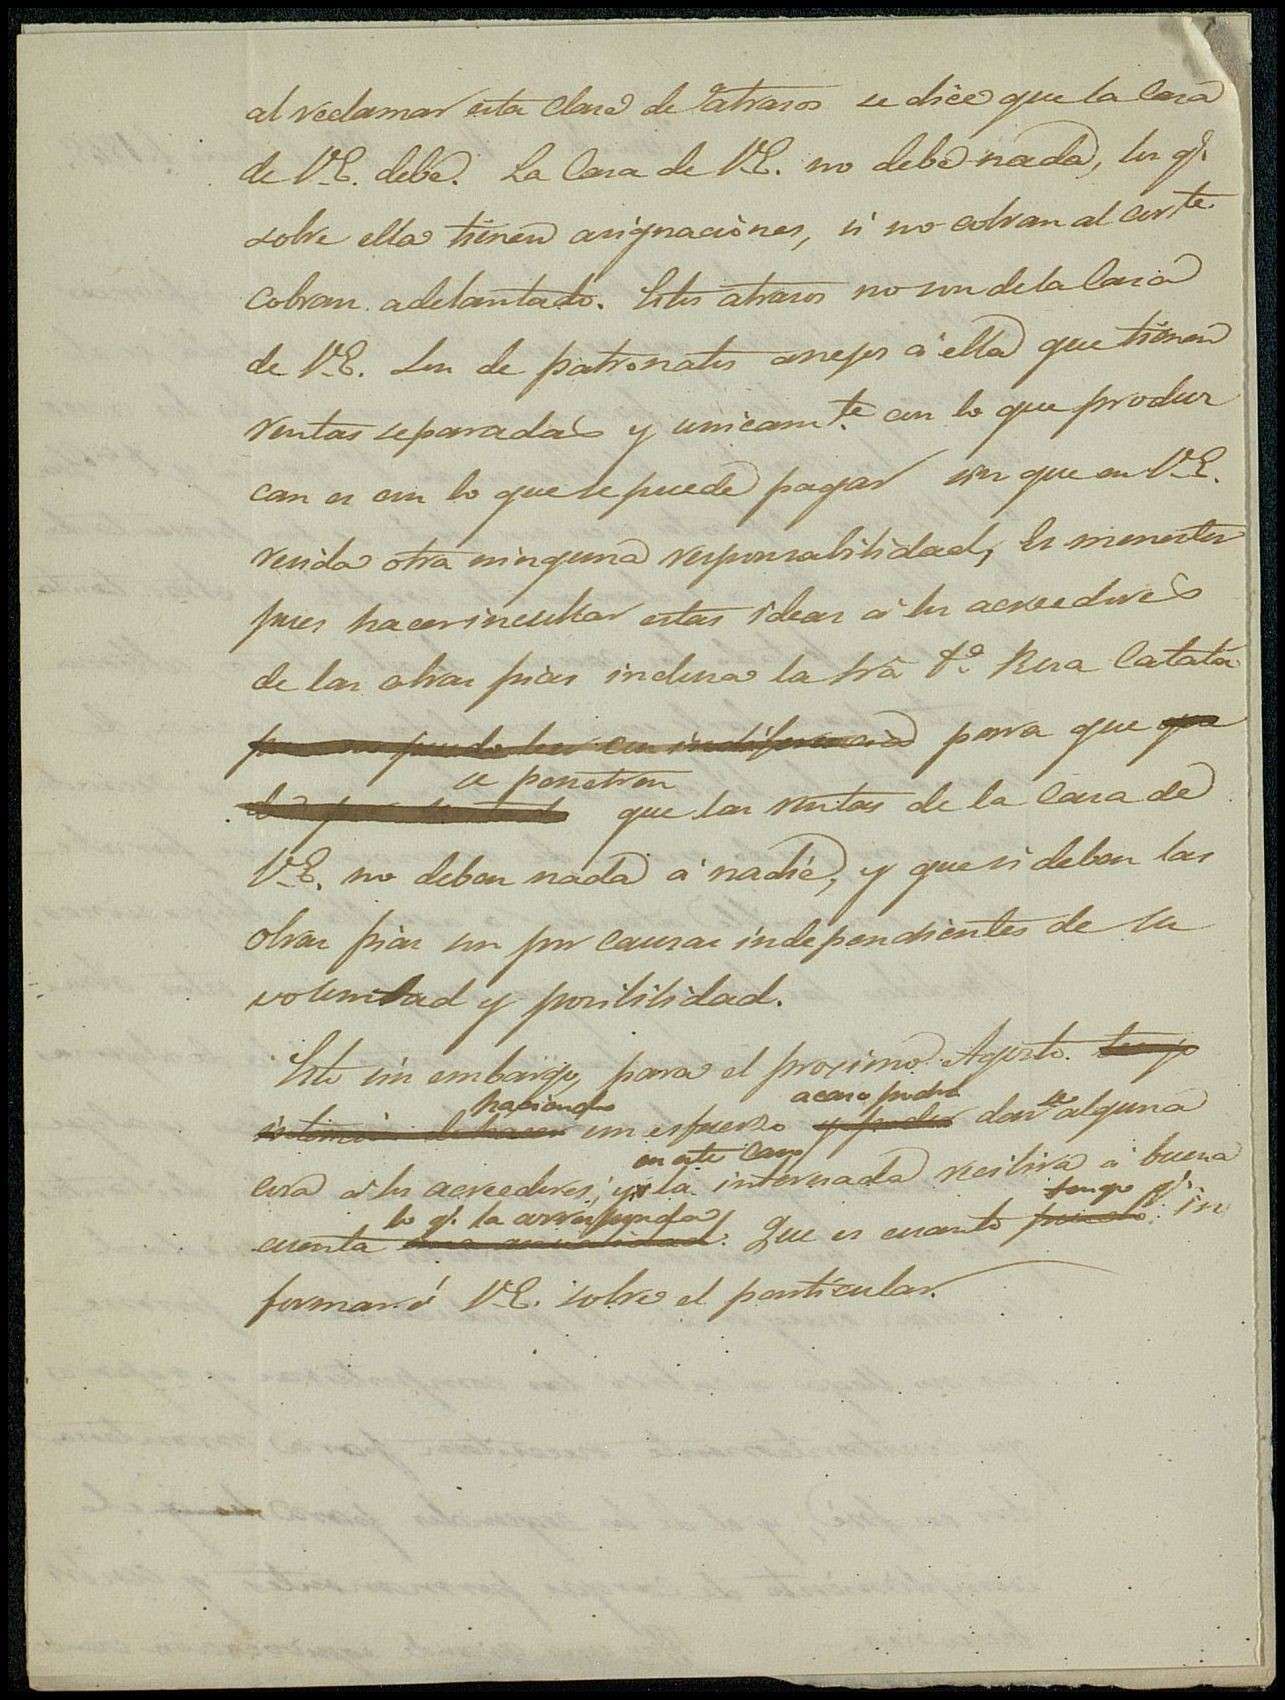 al reclamar esta clase de atrasos se dice que la Casa
de V.E. debe. La Casa de V.E. no debe nada, los q.e
sobre ella tienen asignaciones, si no cobran al corr.te
cobran adelantado. Estos atrasos no son de la Casa
de V.E. Son de patronatos anejos á ella que tienen
rentas separadas y unicam.te con lo que produz
can es con lo que se puede pagar sin que en V.E.
resida otra ninguna responsabilidad, Es menester
pues hacer inculcar estas ideas á los acreedores
de las obras pias inclusa la Srã D.ª Rosa Catalá
para que
se penetren
que las rentas de la Casa de
V.E. no deben nada á nadie, y que si deben las
obras pias son por causas independientes de su
voluntad y posibilidad.
Esto sin embargo, para el proximo Agosto tengo
haciendo acaso podrá
intencion de hacer un esfuerzo y poder darse alguna
en este caso
cosa á los acreedores, y la interesada recibirá á buena
lo q.e la corresponda tengo q.e
cuenta una anualidad. Que es cuanto puedo in
formar á V.E. sobre el particular.